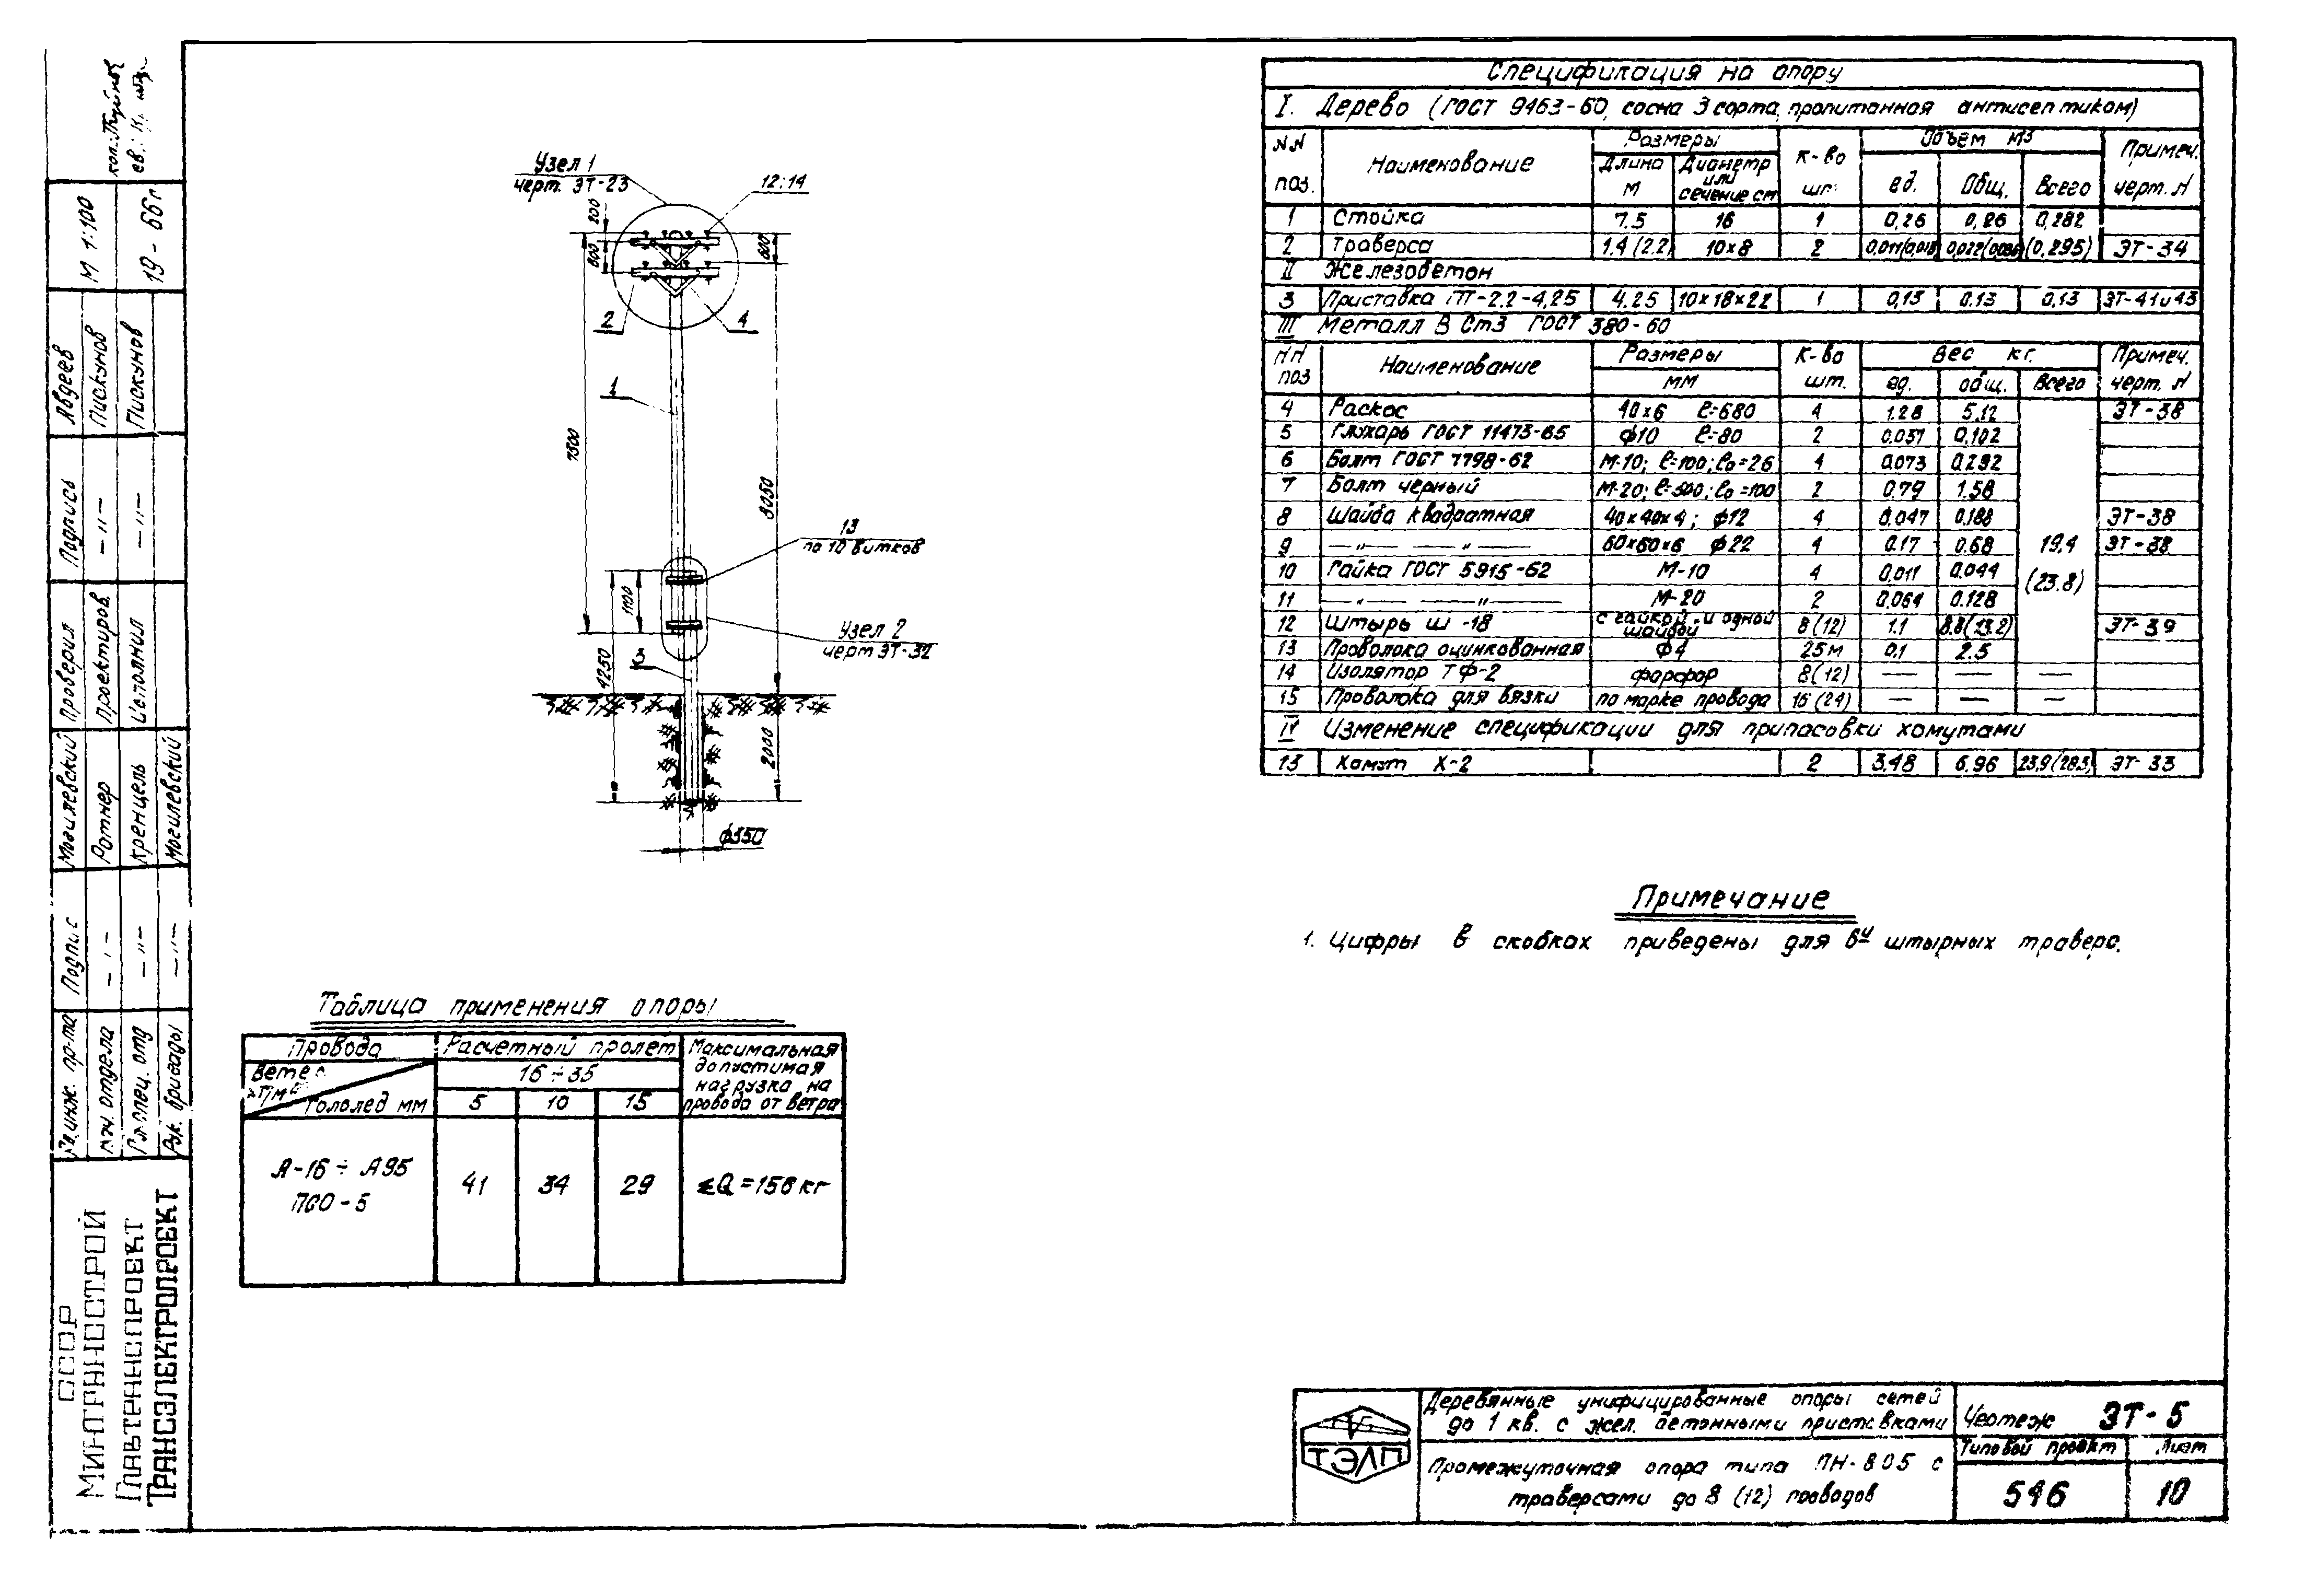 Спецификация на опору
I. Дерево (ГОСТ 9463-60, сосна 3 сорта, пропитанная антисептиком)
NN поз. Наименование Размеры К-во шт. Объем м3 Примеч. черт. N
Длина м Диаметр или сечение см ед. Общ. Всего
1 Стойка 7.5 16 1 0,26 0,26 0,282
2 Траверса 1.4 (2.2) 10x8 2 (0,295) ЭТ-34
II Железобетон
3 Приставка ПТ-2.2-4,25 4.25 10x18x22 1 0,13 0.13 0,13 ЭТ-41и43
III Металл В Ст3 ГОСТ 380-60
NN поз Наименование Размеры К-во шт. Вес кг. Примеч. черт. N
мм ед. общ. Всего
4 Раскос 40x6 ℓ=680 4 1.28 5.12 ЭТ-38
5 Глухарь ГОСТ 11473-65 ф10 ℓ=80 2 0,102
6 Болт ГОСТ 7798-62 М-10; ℓ=100; ℓ₀=26 4 0.073 0.292
7 Болт черный М-20; ℓ=500; ℓ₀=100 2 0.79 1.58
8 Шайба квадратная 40x40x4; ф12 4 0.047 0.188 ЭТ-38
9 —〃— —〃— 60x60x6 ф22 4 0.17 0.68 19,4 ЭТ-38
10 Гайка ГОСТ 5915-62 М-10 4 0,011 0.044 (23.8)
11 —〃— —〃— М-20 2 0,064 0.128
12 Штырь Ш-18 с гайкой и одной шайбой 8 (12) 1.1 8.8 (13.2) ЭТ-39
13 Проволока оцинкованная ф4 25м 0,1 2.5
14 Изолятор ТФ-2 фарфор 8 (12) — — —
15 Проволока для вязки по марке провода 16 (24) — — —
IV Изменение спецификации для припасовки хомутами
13 Хомут Х-2 2 3.48 6.96 23,9 (28.3) ЭТ-33
Примечание
1. Цифры в скобках приведены для 6и штырных траверс.
Узел 1
черт. ЭТ-23
12÷14
200
600
800
2
4
1
7500
8050
13
по 10 витков
1100
Узел 2
черт ЭТ-32
3
4250
2000
ф350
Таблица применения опоры
Провода Расчетный пролет Максимальная допустимая нагрузка на провода от ветра
Ветер 16÷35
Гололед мм 5 10 15
А-16÷А95 41 34 29 ΣQ=156кг
ПСО-5
Деревянные унифицированные опоры сетей
до 1 кв. с жел. бетонными приставками
Чертеж ЭТ-5
ТЭЛП
Промежуточная опора типа ПН-805 с
траверсами до 8 (12) проводов
Типовой проект Лист
546 10
М 1:100
19-66г
Авдеев
Пискунов
Пискунов
Подпись
—〃—
—〃—
Проверил
Проектиров.
Исполнил
Могилевский
Ротнер
Кренцель
Могилевский
—〃—
—〃—
—〃—
Гл. инж. пр-та
Нач. отдела
Гл. спец. отд
Рук. бригады
СССР
МИНТРАНССТРОЙ
ГЛАВТРАНСПРОЕКТ
ТРАНСЭЛЕКТРОПРОЕКТ